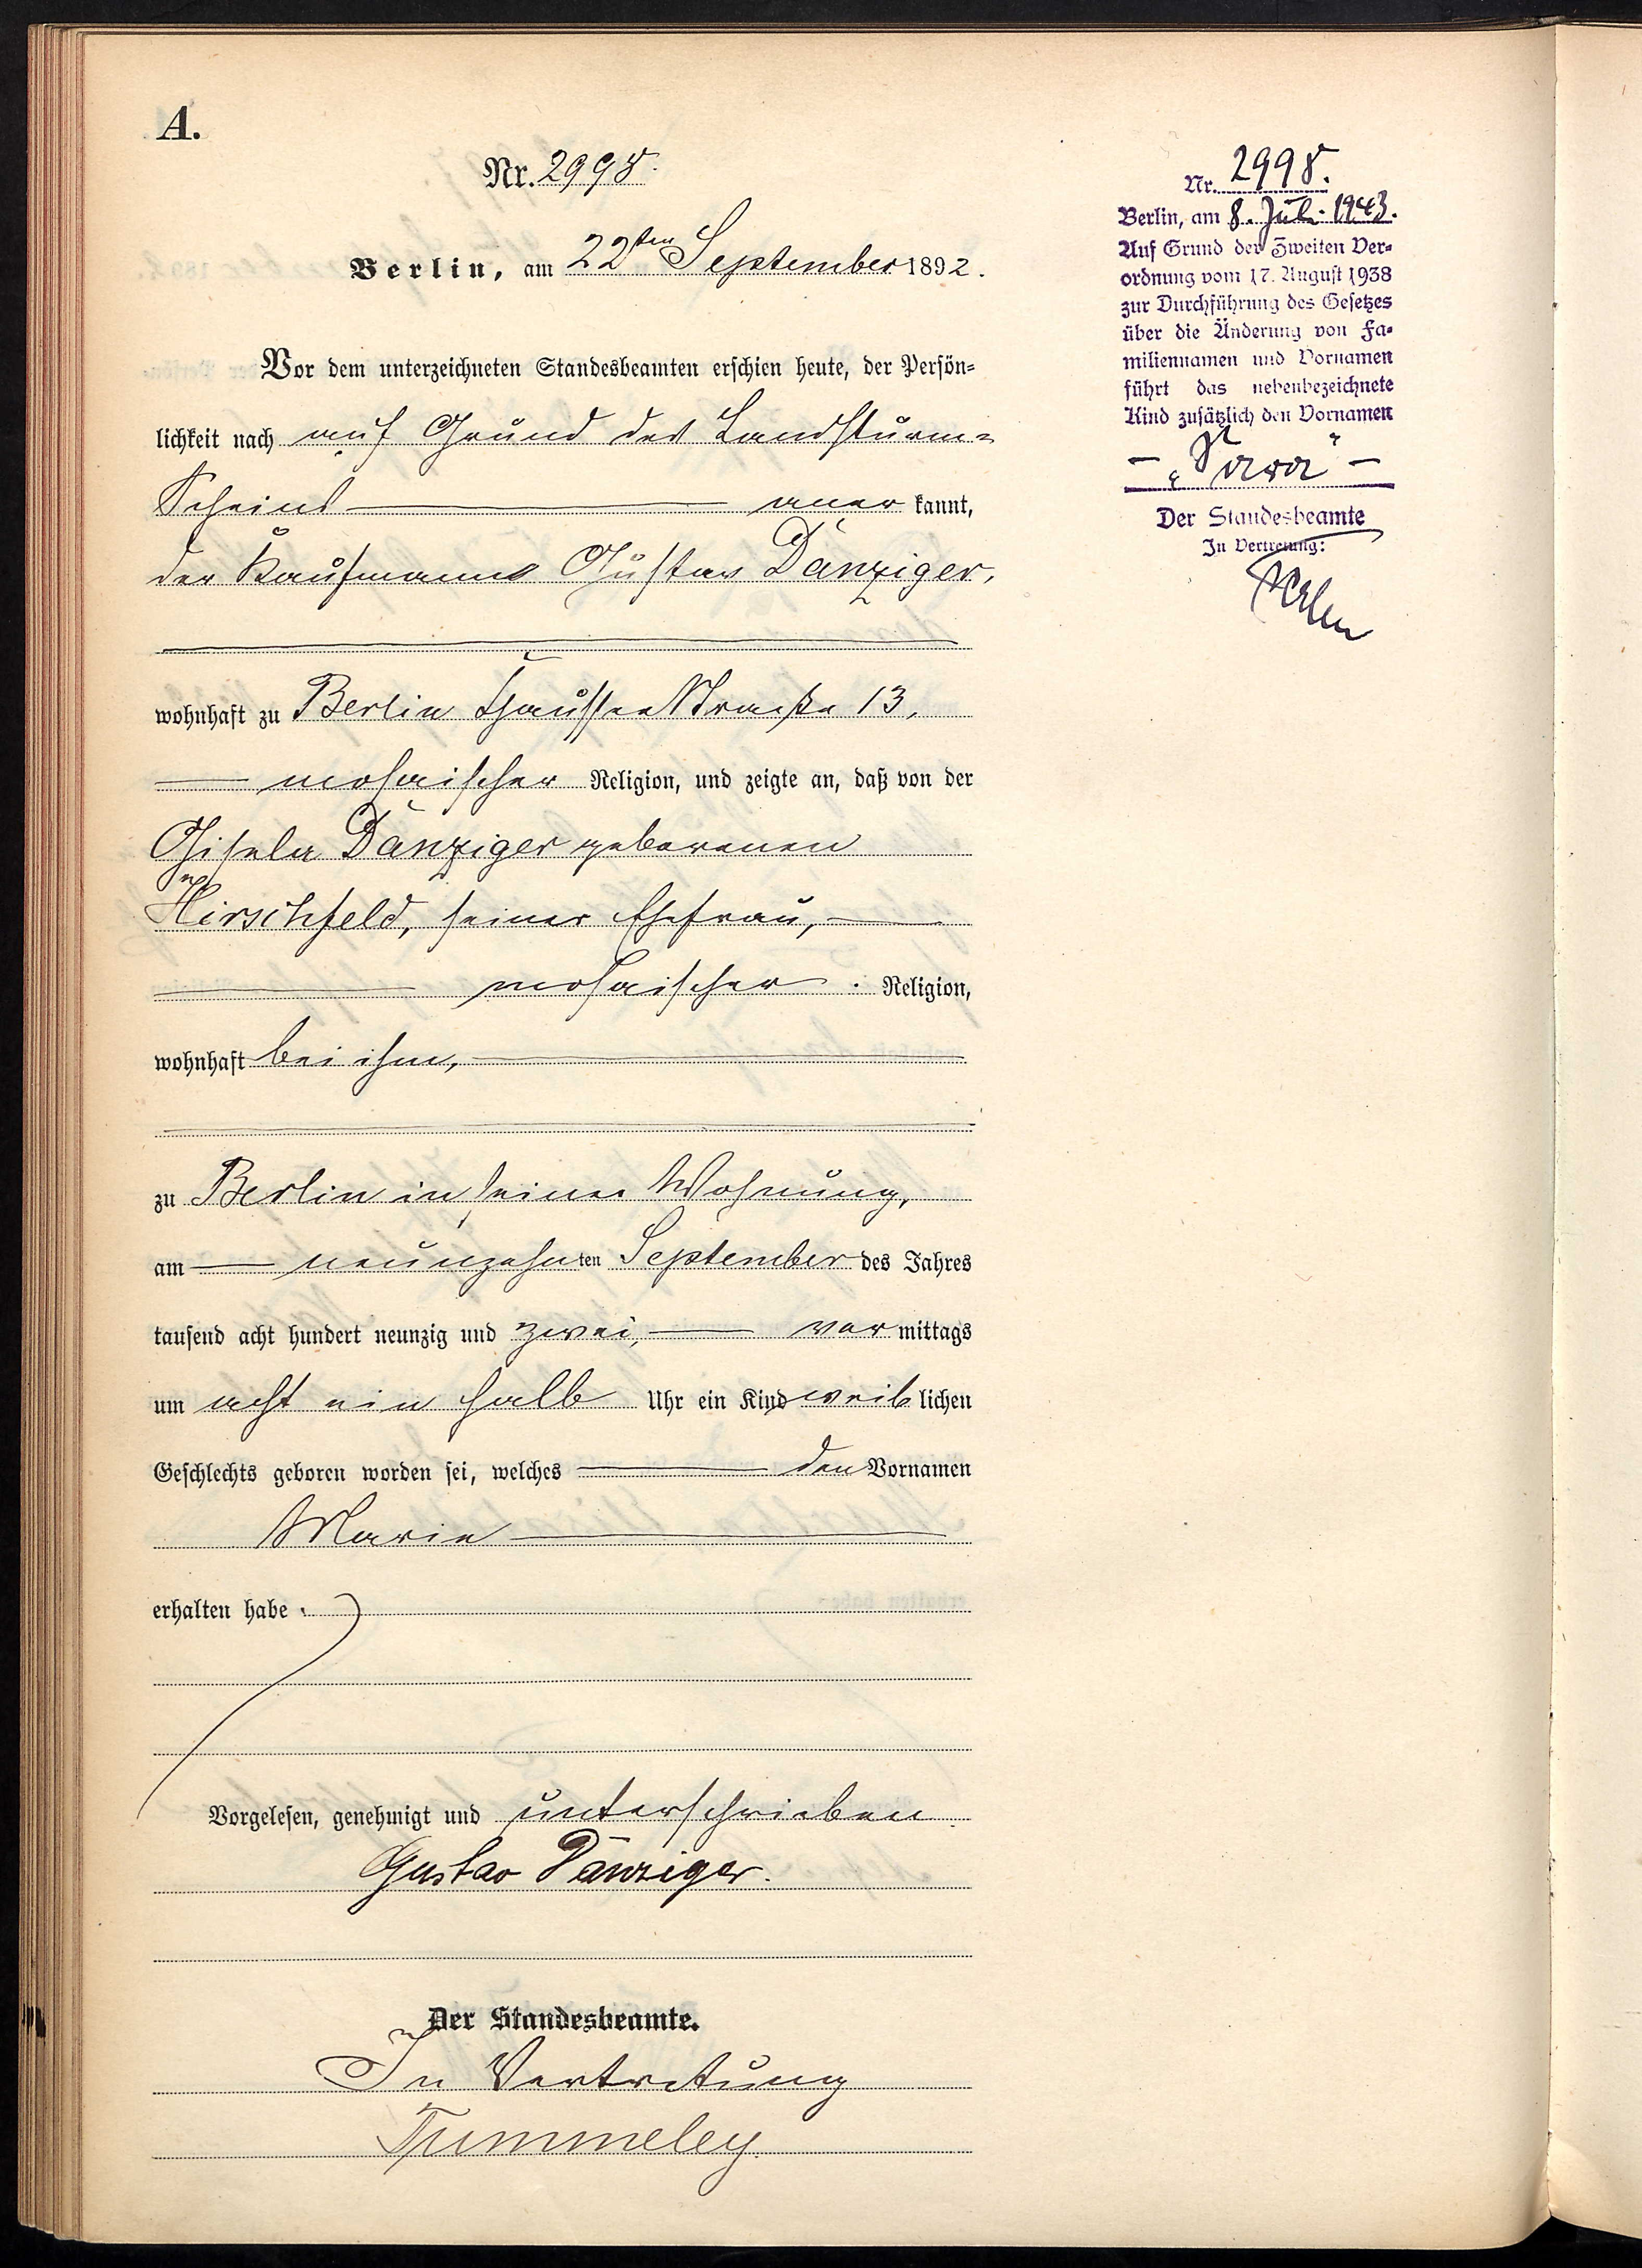 A.
Nr. 2998.
Berlin, am 22ten September 1892.
Vor dem unterzeichneten Standesbeamten erschien heute, der Persön-
lichkeit nach auf Grund des Landsturm-
Scheins aner kannt,
der Kaufmann Gustav Danziger,
wohnhaft zu Berlin Straße 13,
mosaischer Religion, und zeigte an, daß von der
Gisela Danziger geborenen
Hirschfeld, seiner Ehefrau,
mosaischer Religion,
wohnhaft bei ihm,
zu Berlin in seiner Wohnung,
am neunzehnten September des Jahres
tausend acht hundert neunzig und zwei, vor mittags
um acht ein halb Uhr ein Kind weib lichen
Geschlechts geboren worden sei, welches den Vornamen
Marie
erhalten habe.
Vorgelesen, genehmigt und unterschrieben
Gustav Danziger.
Der Standesbeamte.
In Vertretung
Tummeley.
Nr. 2998.
Berlin, am 8. Juli 1943.
Auf Grund der Zweiten Ver-
ordnung vom 17. August 1938
zur Durchführung des Gesetzes
über die Änderung von Fa-
miliennamen und Vornamen
führt das nebenbezeichnete
Kind zusätzlich den Vornamen
- „Sara" -
Der Standesbeamte
In Vertretung: